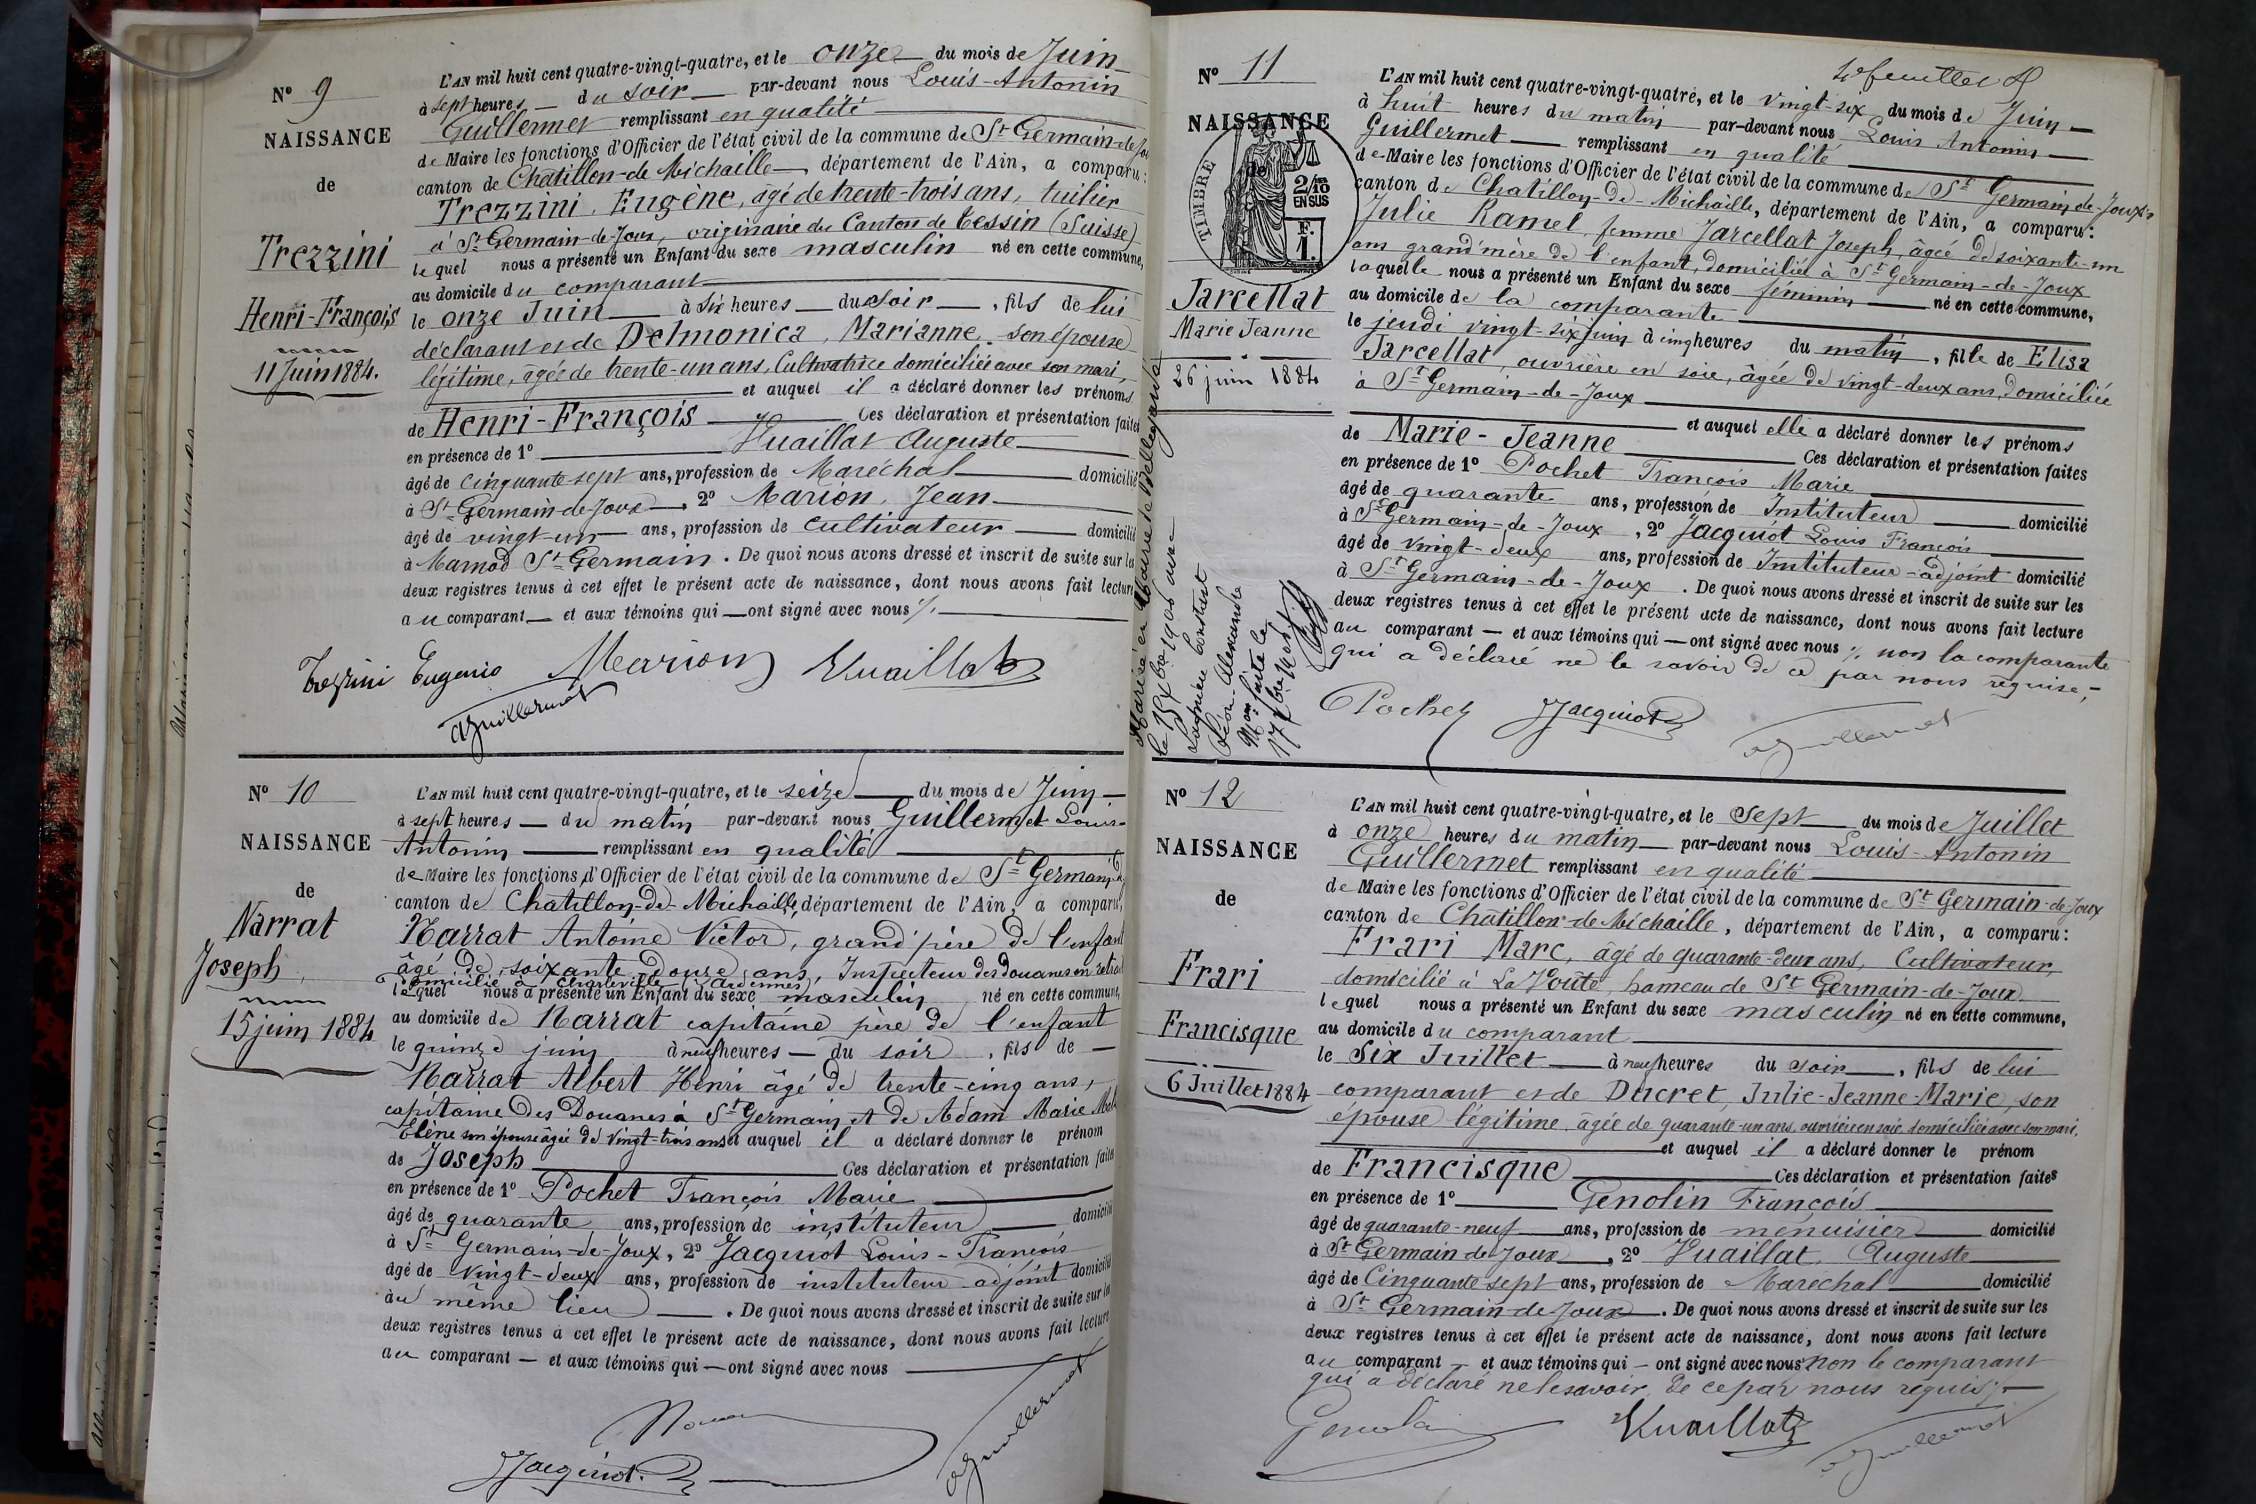 N° 9
NAISSANCE
de
Trezzini
Henri-François
11 Juin 1884.
L'AN mil huit cent quatre-vingt-quatre, et le onze du mois de Juin
à sept heures du soir par-devant nous Louis-Antonin
Guillermet remplissant en qualité
de Maire les fonctions d'Officier de l'état civil de la commune de St Germain-de-Jo
canton de Chatillon-de-Michaille, département de l'Ain, a comparu:
Trezzini, Eugène, âgé de trente-trois ans, tuilier
à St Germain-de-Joux, originaire du Canton de Tessin (Suisse)
lequel nous a présenté un Enfant du sexe masculin né en cette commune,
au domicile du comparant
le onze Juin à six heures du soir, fils de lui
déclarant et de Delmonica, Marianne, son épouse
légitime, âgée de trente-un ans, Cultivatrice domiciliée avec son mari,
et auquel il a déclaré donner les prénoms
de Henri-François Ces déclaration et présentation faites
en présence de 1° Vuaillat Auguste
âgé de cinquante sept ans, profession de Maréchal domicilié
à St Germain-de-Joux, 2° Marion, Jean
âgé de vingt-un ans, profession de cultivateur domicilié
à Marnod St Germain. De quoi nous avons dressé et inscrit de suite sur les
deux registres tenus à cet effet le présent acte de naissance, dont nous avons fait lecture
au comparant et aux témoins qui ont signé avec nous
Trezzini Eugenio Marion Vuaillat
aguillermet
N° 10
NAISSANCE
de
Narrat
Joseph
15 juin 1884
L'AN mil huit cent quatre-vingt-quatre, et le seize du mois de Juin
à sept heures du matin par-devant nous Guillermet Louis-
Antonin remplissant en qualité
de Maire les fonctions d'Officier de l'état civil de la commune de St Germain-d
canton de Chatillon-de-Michaille, département de l'Ain, a comparu,
Narrat Antoine Victor, grand'père de l'enfant
âgé de soixante-douze ans, Inspecteur des Douanes en retrait
domicilié à Charleville (Ardennes)
lequel nous a présenté un Enfant du sexe masculin né en cette commune,
au domicile de Narrat capitaine père de l'enfant
le quinze juin à neuf heures du soir, fils de
Narrat Albert Henri âgé de trente-cinq ans,
capitaine des Douanes à St Germain et de Adam Marie
Hélène son épouse âgée de vingt-trois ans et auquel il a déclaré donner le prénom
de Joseph Ces déclaration et présentation faites
en présence de 1° Pochet François Marie
âgé de quarante ans, profession de instituteur domicilié
à St Germain-de-Joux, 2° Jacquiot Louis-François
âgé de vingt-deux ans, profession de instituteur adjoint domicilié
au même lieu. De quoi nous avons dressé et inscrit de suite sur les
deux registres tenus à cet effet le présent acte de naissance, dont nous avons fait lecture
au comparant et aux témoins qui ont signé avec nous
Jacquiot. aguillermet
4e feuillet
N° 11
NAISSANCE
de
TIMBRE
2/10 EN SUS
F. 1.
Jarcellat
Marie Jeanne
26 juin 1884
Mariée en Mairie de Bellegarde
le 15 7bre 1906 avec
Léon-Alexandre
Mon faite le
17 7bre 1906
L'AN mil huit cent quatre-vingt-quatre, et le vingt-six du mois de Juin
à huit heures du matin par-devant nous Louis Antonin
Guillermet remplissant en qualité
de Maire les fonctions d'Officier de l'état civil de la commune de St Germain-de-Joux
canton de Chatillon-de-Michaille, département de l'Ain, a comparu:
Julie Ramel, femme Jarcellat Joseph, âgée de soixante-un
ans grand'mère de l'enfant, domiciliée à St Germain-de-Joux
laquelle nous a présenté un Enfant du sexe féminin né en cette commune,
au domicile de la comparante
le jeudi vingt-six juin à cinq heures du matin, fille de Elisa
Jarcellat, ouvrière en soie, âgée de vingt-deux ans, domiciliée
à St Germain-de-Joux
et auquel elle a déclaré donner les prénoms
de Marie-Jeanne Ces déclaration et présentation faites
en présence de 1° Pochet François Marie
âgé de quarante ans, profession de Instituteur domicilié
à St Germain-de-Joux, 2° Jacquiot Louis François
âgé de vingt-deux ans, profession de Instituteur-adjoint domicilié
à St Germain-de-Joux. De quoi nous avons dressé et inscrit de suite sur les
deux registres tenus à cet effet le présent acte de naissance, dont nous avons fait lecture
au comparant et aux témoins qui ont signé avec nous non la comparante
qui a déclaré ne le savoir de ce par nous requise,
Pochet Jacquiot aguillermet
N° 12
NAISSANCE
de
Frari
Francisque
6 Juillet 1884
L'AN mil huit cent quatre-vingt-quatre, et le Sept du mois de Juillet
à onze heures du matin par-devant nous Louis-Antonin
Guillermet remplissant en qualité
de Maire les fonctions d'Officier de l'état civil de la commune de St Germain-de-Joux
canton de Chatillon-de-Michaille, département de l'Ain, a comparu:
Frari Marc, âgé de quarante-deux ans, Cultivateur,
domicilié à La Voûte, hameau de St Germain-de-Joux
lequel nous a présenté un Enfant du sexe masculin né en cette commune,
au domicile du comparant
le Six Juillet à neuf heures du soir, fils de lui
comparant et de Ducret, Julie-Jeanne-Marie, son
épouse légitime, âgée de quarante-un ans, ouvrière en soie, domiciliée avec son mari,
et auquel il a déclaré donner le prénom
de Francisque Ces déclaration et présentation faites
en présence de 1° Genolin François
âgé de quarante-neuf ans, profession de menuisier domicilié
à St Germain de Joux, 2° Vuaillat, Auguste
âgé de Cinquante sept ans, profession de Maréchal domicilié
à St Germain de Joux. De quoi nous avons dressé et inscrit de suite sur les
deux registres tenus à cet effet le présent acte de naissance, dont nous avons fait lecture
au comparant et aux témoins qui ont signé avec nous non le comparant
qui a déclaré ne le savoir de ce par nous requis
Genolin Vuaillat aguillermet